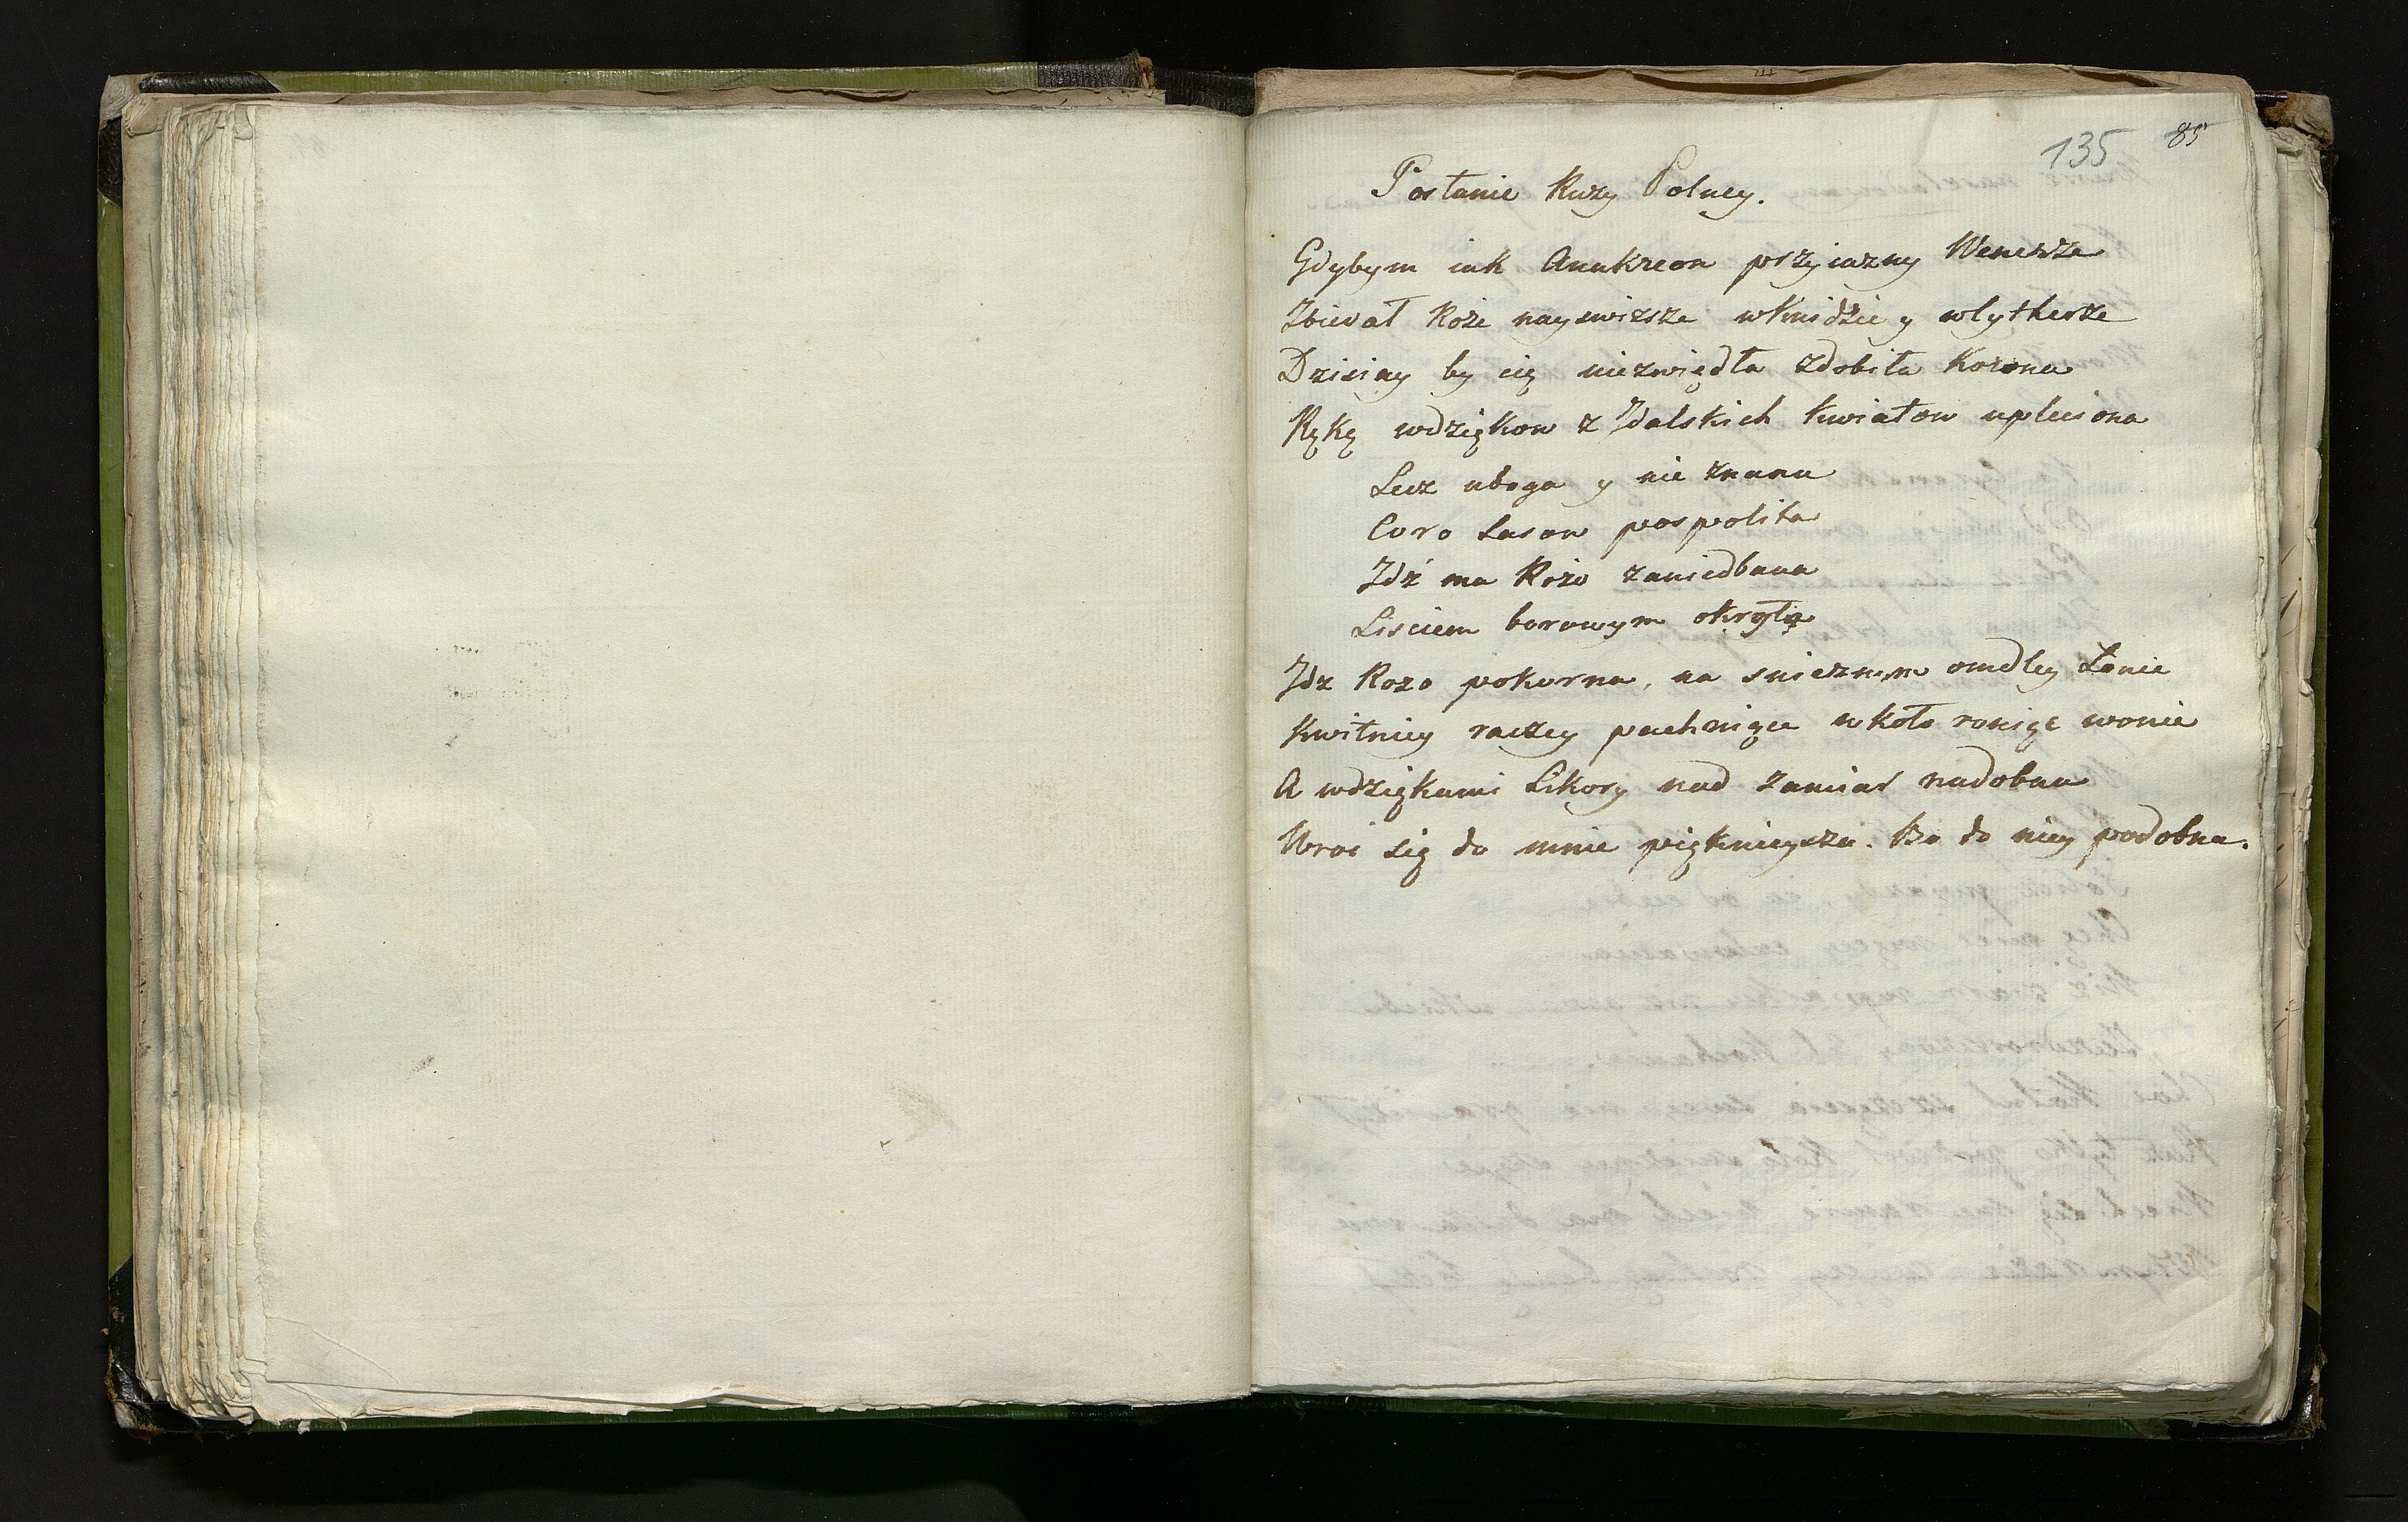 135 85
Posłanie Ruży Polney.
Gdybym iak Anakreon przyiazny Wenerze
Zbierał Roże nayswieższe w Knidzie y w Cytherze
Dzisiay by cię niezwiędła zdobiła Korona
Ręką wdziękow z Idalskich kwiatow upleciona
Lecz uboga y nie znana
Coro Lasow pospolita
Idź ma Rożo zaniedbana
Lisciem borowym okryta
Idz Rozo pokorna, na snieznym omdley Łonie
Kwitniey raczey pachnięce w koło roniąc wonie
A wdziękami Likory nad zamiar nadobna
Wroc się do mnie pięknieysza. Bo do niey podobna.